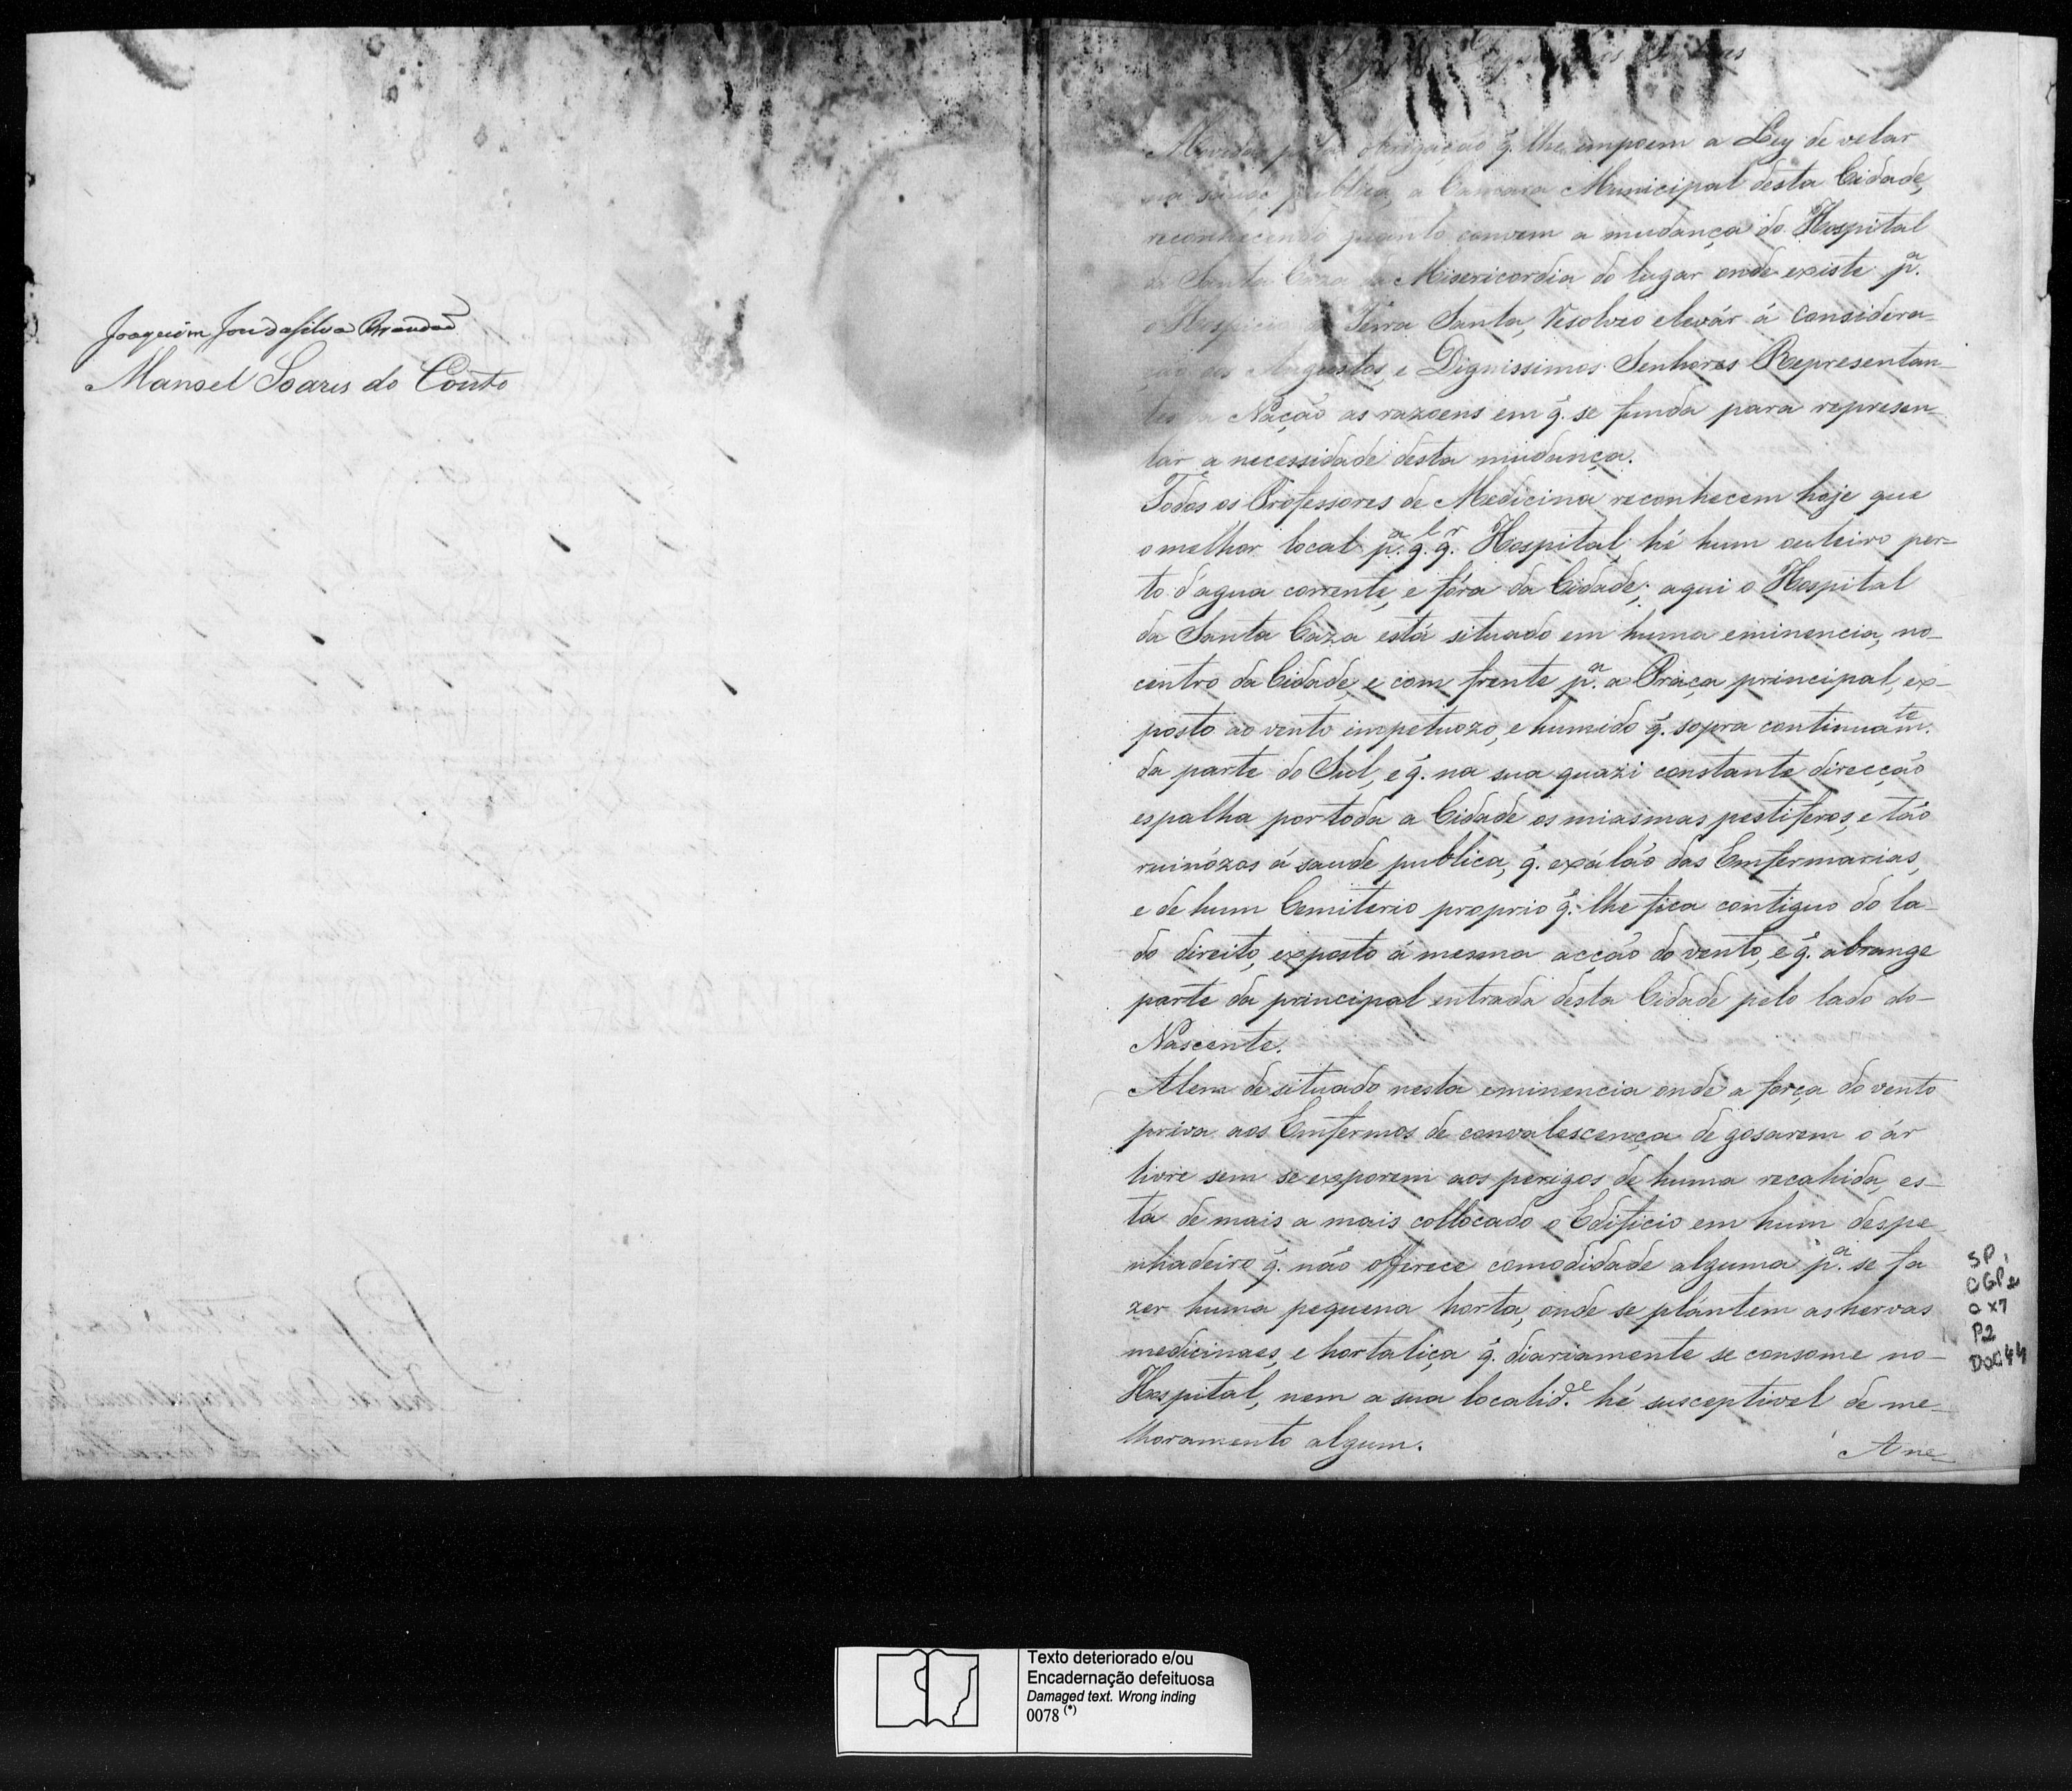 Joaquim Jose da Silva Brandaõ
Manoel Soares do Couto
obrigaçaõ q̃. lhe impoem a Ley de velar
publica, a Camara Municipal desta Cidade,
reconhecendo quanto convem a mudança do Hospital
da Santa Caza da Misericordia do lugar onde existe p.ª
o Hospicio da Terra Santa, Resolveo elevár á considera-
ção dos Augustos, e Dignissimos Senhores Representan-
tes da Nação as razoens em q̃. se funda para represen-
tar a necessidade desta mudança.
Todos os Professores de Medicina reconhecem hoje que
o melhor local p.ª q.l q.r Hospital, hé hum outeiro per-
to d'agua corrente, e fóra da Cidade; aqui o Hospital
da Santa Caza está situado em huma eminencia, no-
centro da Cidade, e com frente p.ª a Praça principal, ex-
posto ao vento impetuozo, e humido q̃. sopra continuam.te
da parte do Sul, e q̃. na sua quazi constante direcção
espalha por toda a Cidade os miasmas pestiferos, e tão
ruinózos á saude publica, q̃. exálão das Emfermarias,
e de hum Cemiterio proprio q̃. lhe fica contiguo do la-
do direito, exposto á mesma acção do vento, e q̃. abrange
parte da principal entrada desta Cidade pelo lado do-
Nascente.
Alem de situado nesta eminencia onde a força do vento
priva aos Emfermos de convalescença de gosarem o ár
livre sem se exporem aos perigos de huma recahida, es-
tá de mais a mais collocado o Edificio em hum despe-
nhadeiro q̃. não offerece comodidade alguma p.ª se fa
zer huma pequena horta, onde se plántem as hervas
medicinaes, e hortaliça q̃. diariamente se consome no-
Hospital, nem a sua localid.e hé susceptivel de me-
lhoramento algum.
A ne-
SP,
CGP2
CX7
P2
DOC44
Texto deteriorado e/ou
Encadernação defeituosa
Damaged text. Wrong inding
0078 (*)